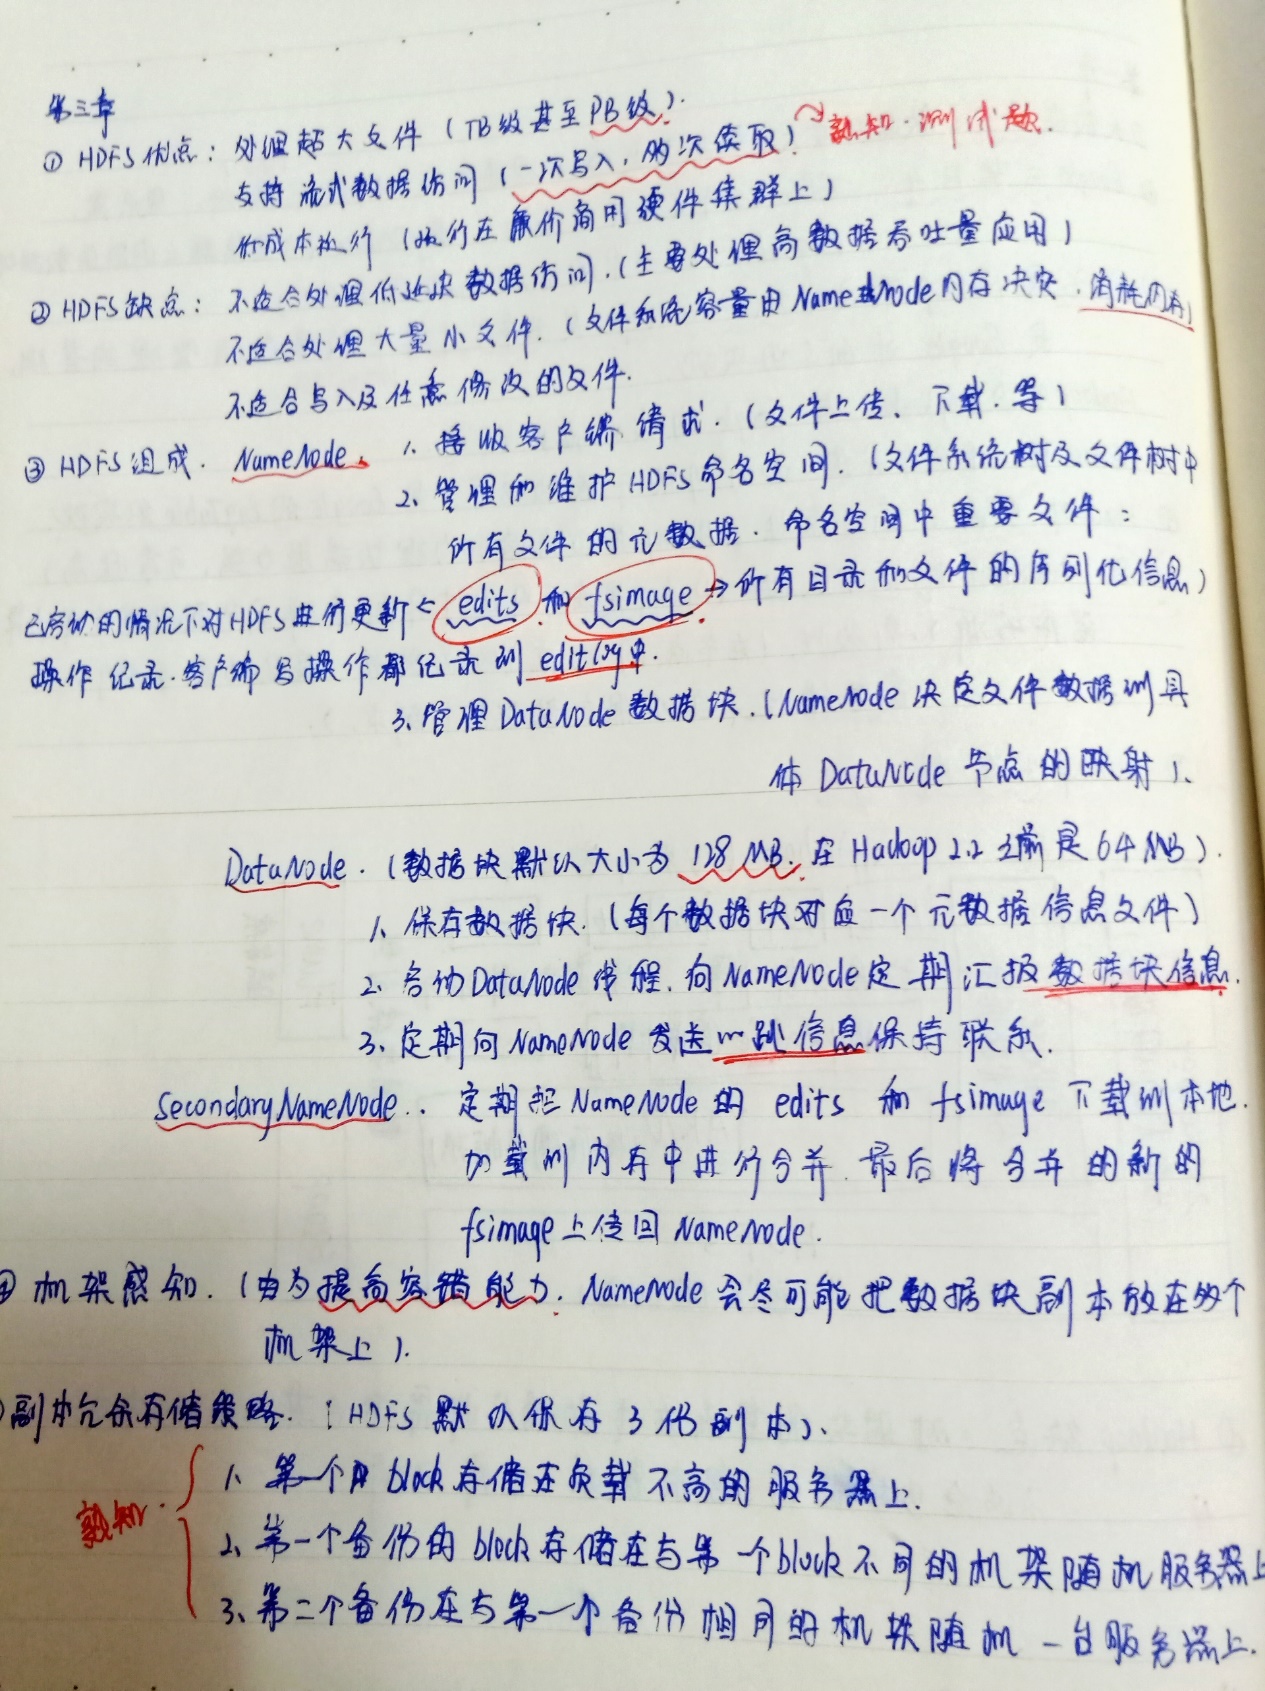 第三章
① HDFS优点: 处理超大文件 (TB级甚至PB级).
支持流式数据访问 (一次写入, 多次读取) 熟知. 测试题.
低成本执行 (执行在廉价商用硬件集群上)
② HDFS缺点: 不适合处理低延迟数据访问. (主要处理高数据吞吐量应用)
不适合处理大量小文件. (文件系统容量由NameNode内存决定. 消耗内存)
不适合写入及任意修改的文件.
③ HDFS组成. NameNode. 1. 接收客户端请求. (文件上传、下载. 等)
2. 管理和维护HDFS命名空间. (文件系统树及文件树中
所有文件的元数据. 命名空间中重要文件:
已启动的情况下对HDFS进行更新 ← edits 和 fsimage → 所有目录和文件的序列化信息)
操作纪录. 客户端写操作都纪录到editlog中.
3. 管理DataNode数据块. (NameNode决定文件数据到具
体DataNode节点的映射).
DataNode. (数据块默认大小为128MB. 在Hadoop 2.2之前是64MB).
1. 保存数据块. (每个数据块对应一个元数据信息文件)
2. 启动DataNode线程. 向NameNode定期汇报数据块信息.
3. 定期向NameNode发送心跳信息保持联系.
SecondaryNameNode.. 定期把NameNode的edits和fsimage下载到本地.
加载到内存中进行合并. 最后将合并的新的
fsimage上传回NameNode.
④ 机架感知. (由为提高容错能力. NameNode会尽可能把数据块副本放在多个
机架上).
副本冗余存储策略. (HDFS默认保存3份副本).
熟知. 1. 第一个block存储在负载不高的服务器上.
2. 第一个备份的block存储在与第一个block不同的机架随机服务器上
3. 第二个备份在与第一个备份相同的机架随机一台服务器上.